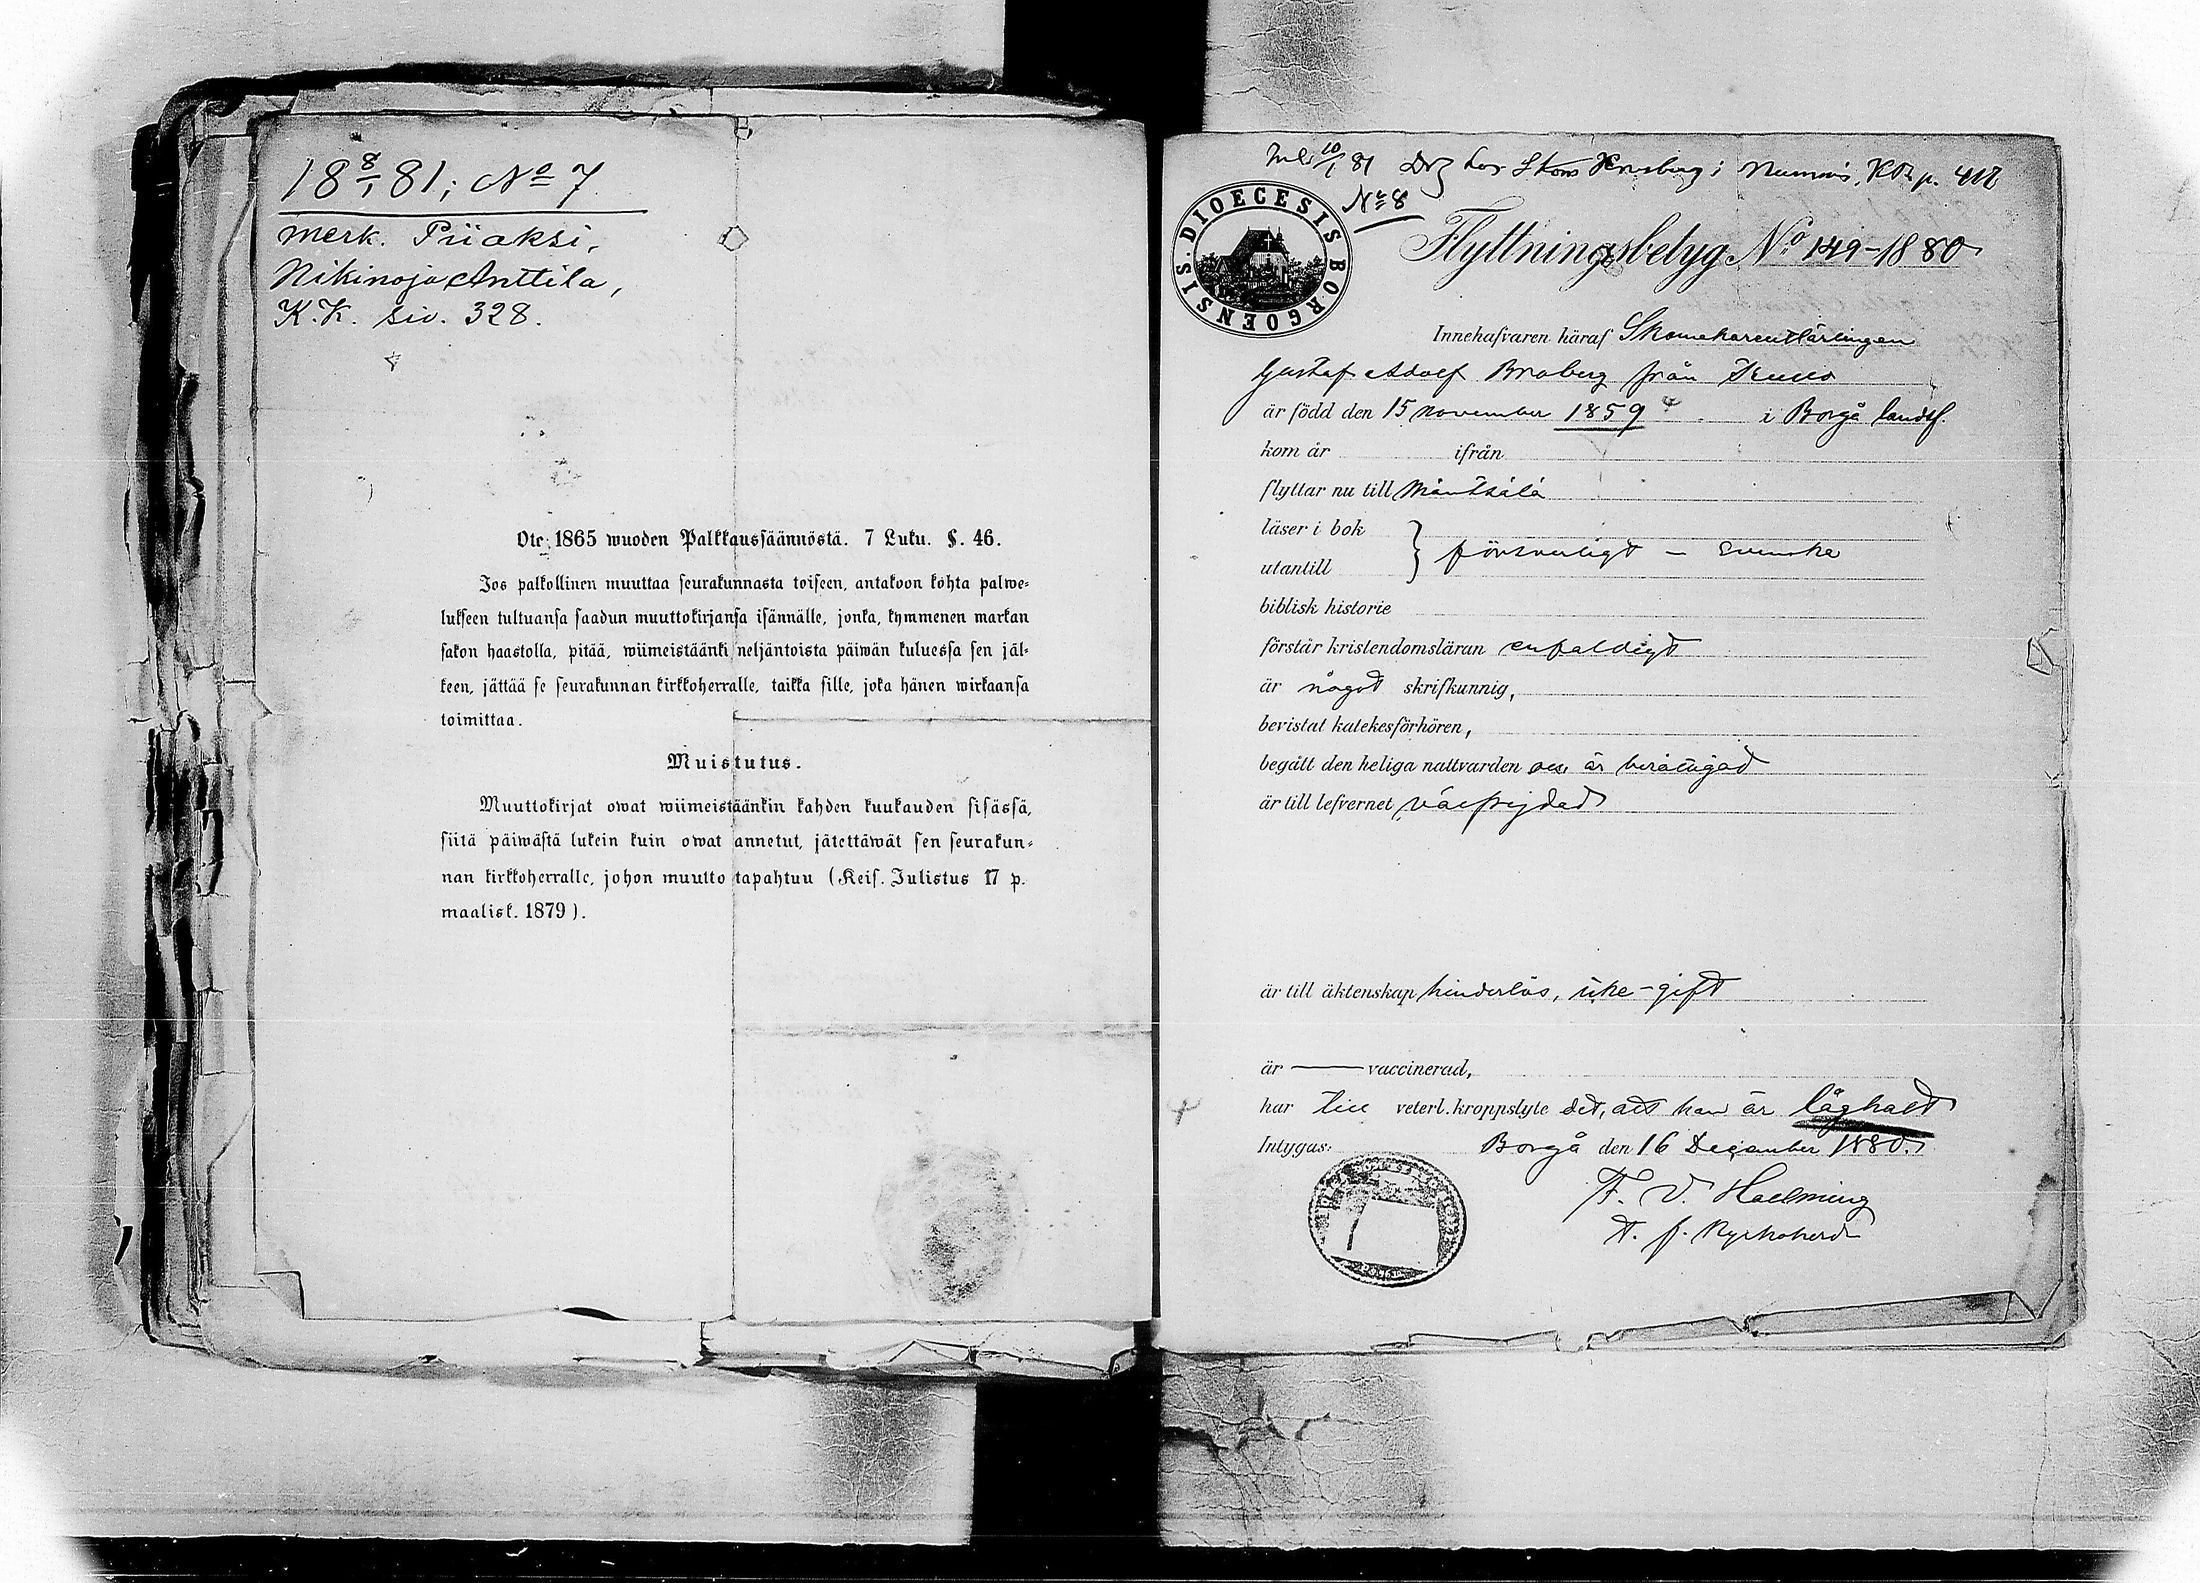 18 8/1 81; No 7
merk. Piiaksi,
Nikinoja Anttila,
K.K. siv. 328.
Ote 1865 wuoden Palkkaussäännöstä. 7 Luku. §. 46.
Jos palkollinen muuttaa seurakunnasta toiseen, antakoon kohta palwe-
lukseen tultuansa saadun muuttokirjansa isännälle, jonka, kymmenen markan
sakon haastolla, pitää, wiimeistäänki neljäntoista päiwän kuluessa sen jäl-
keen, jättää se seurakunnan kirkkoherralle, taikka sille, joka hänen wirkaansa
toimittaa.
Muistutus.
Muuttokirjat owat wiimeistäänkin kahden kuukauden sisässä,
siitä päiwästä lukein kuin owat annetut, jätettäwät sen seurakun-
nan kirkkoherralle, johon muutto tapahtuu (Keis. Julistus 17 p.
maalisk. 1879).
10/1 81 hos Skom i Numnis, KB p. 412
No 8
DIOECESIS BORGOENSIS.
Flyttningsbetyg No 149-1880
Innehafvaren häraf Skomakarelärlingen
Gustaf Adolf Broberg från
är född den 15 november 1859 i Borgå landsf.
kom år ifrån
flyttar nu till Mäntsälä
läser i bok
utantill } försvarligt - svenska
biblisk historie
förstår kristendomsläran enfaldigt
är något skrifkunnig,
bevistat katekesförhören,
begått den heliga nattvarden och är berättigad
är till lefvernet välfrejdad
är till äktenskap hinderlös, icke-gift
är — vaccinerad,
har till veterl. kroppslyte det, att han är låghalt
Intygas: Borgå den 16 December 1880.
F. V. Hællming
t. f. Kyrkoherde